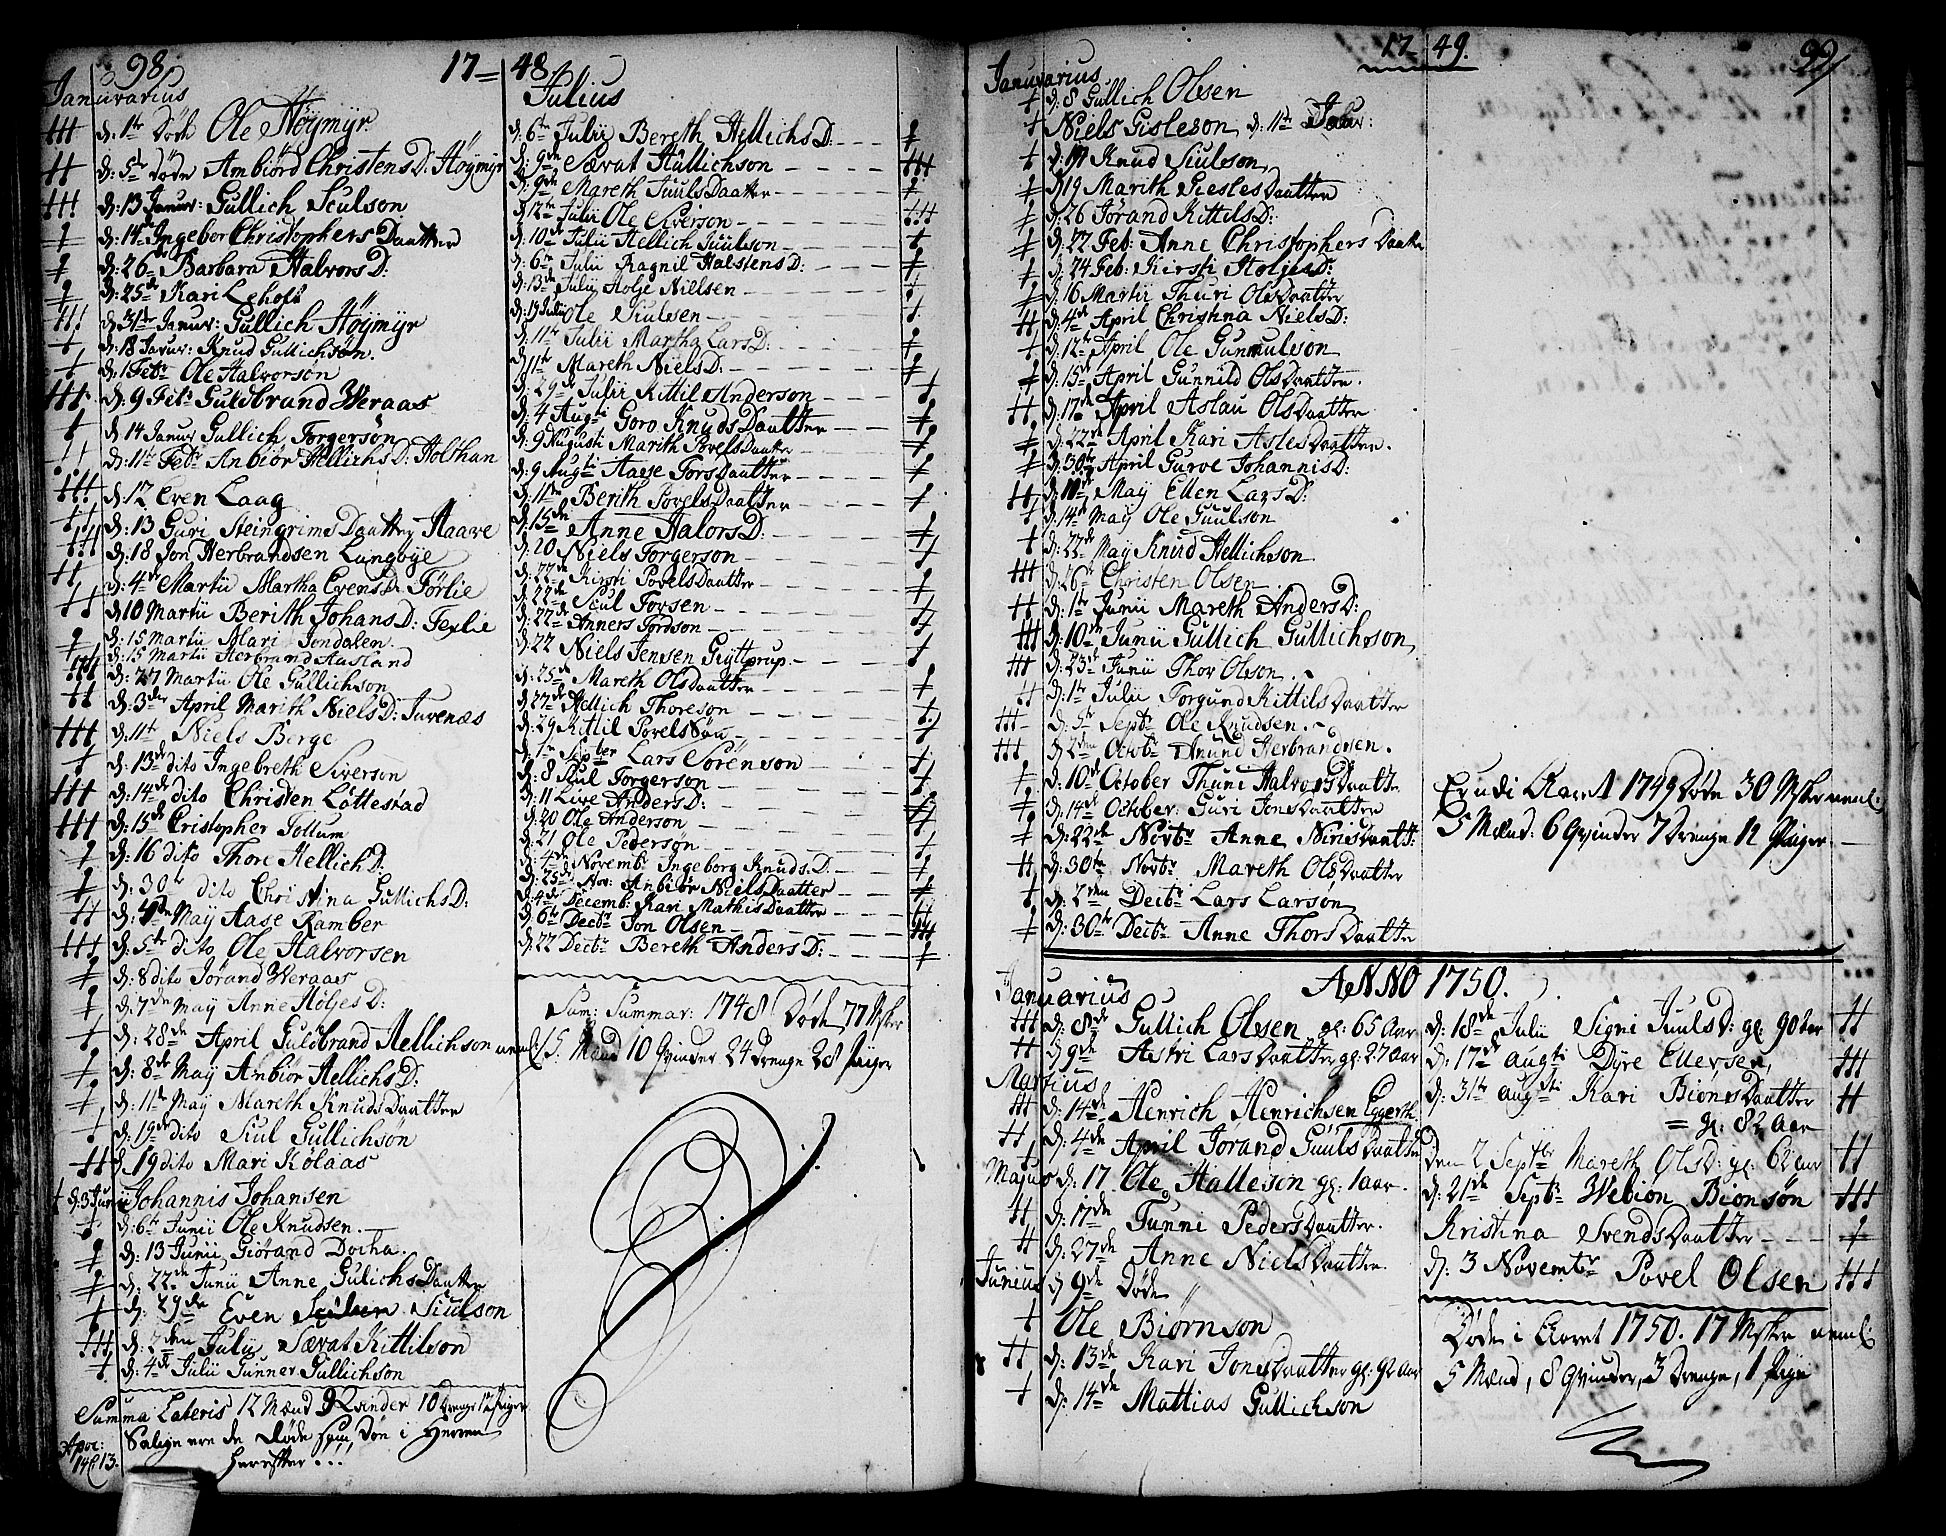 98.
17 = 48
Januvarius
d: 1te Døde Ole Höymyr
d: 5te døde Ambiörd ChristensD: Höymyr
d: 13 Januv: Gullich Sculson
d: 14 Ingebor Christophers Daatter
d: 26 Barbara HalvorsD:
d: 25de Kari Lehofs
d: 31te Januv: Gullich Höymyr
d: 18 Januv: Knud Gullichsön.
d: 1 Febr Ole Halvorson
d: 9 Feb: Guldbrand Weraas
d 14 Januv Gullich Torgersön
d: 11te Febr Anbiör HellichsD: Holthan
d 12 Even Laag
d: 13 Guri Steingrims Daatter Haave
d: 18 Jon Herbrandsen Langöye
d: 4de Martii Martha EvensD: Förlie
d 10 Martii Berith JohansD:
d: 15 Martii Mari Jondalen.
d: 15 Martii Herbrand Aasland
d: 27 Martii Ole Gullichson
d: 3de April Marith NielsD: Juvenæs
d: 11te Niels Berge
d: 13de dito Ingebreth Siverson
d: 14de dito Christen Lottestad
d: 15de Cristopher Tollum
d: 16 dito Thore HellichD:
d: 30te dito Christina GullichsD:
d: May Aase Ramber
d: 5te dito Ole Halvorsen
d: 8 dito Jörand Weraas
d: 7de May Anne HöljesD:
d: 28de April Guldbrand Hellichson
d: 8de May Ambiör HellichsD:
d: 11te May Mareth Knuds Daatter
d: 19de dito Siul Gullichsön
d. 19 dito Mari Kolaas
d: 3 Junii Johannis Johansen
d: 6te Junii Ole Knudsen.
d: 13 Junii Giörand Docka.
d: 22de Junii Anne Gulichs Daatter
d: 29de Even Siulson
d: 2den July Sævat Kittilson
d: 4de Julii Gunner Gullichson
Summa Lateris 12 Mænd 9 Kvinder 10 Drenge 12 Piger
Salige ere de Døde som døe i Herren
herefter . . .
Apoc:
14 C: 13.
Julius
d: 6te Julii Bereth HellichsD:
d: 9de Sævat Hullichson
d: 9de Mareth Juuls Daatter
d: 12te Julii Ole Siverson
d: 10de Julii Hellich Siuulson
d: 6te Julii Ragnil HalstensD:
d: 13de Julii Holje Nielsen
d: 17 Julii Ole Siulsen
d: 11te Julii Martha LarsD:
d 11te Mareth NielsD:
d: 29de Julii Kittil Anderson
d: 4 Augti Goro Knuds Daatter
d: 9 Augusti Marith Povels Daatter
d: 9 Augti Aase Tors Daatter
d: 11te Berith Povels Daatter
d: 15de Anne HalorsD:
d: 20 Niels Torgerson
d: 22de Kirsti Povels Daatter
d: 22de Scul Torsen
d: 22de Anners Tordson
d: 22 Niels Jensen Gyttrup
d: 25de Mareth Ols Daatter
d 27de Hellich Thoreson
d: 29 Kittil Povels Søn
d: 1te Septber Lars Sörenson
d: 8 Skul Torgerson
d: 11 Live AndersD:
d: 20 Ole Anderson
d: 21 Ole Pedersön
d: 4de Novembr Ingeborg KnudsD:
d: 25de Nov: Anbiör Niels Daatter
d: 4de Decemb: Kari Mathis Daatter
d: 6te Decbr Jon Olsen
d: 22 Decbr Bereth AndersD:
Sum: Summar: 1748 Døde 77 Msker
neml: 15 Mænd 10 Qvinder 24 Drenge 28 Piger
17 = 49.
99
Januvarius
d: 8 Gullich Olsen
Niels Gisleson d: 11te Janv:
d: 17 Knud Siulson
d 19 Marith Giesles Daatter
d: 26 Jörand KittilsD:
d: 22 Feb: Anne Christophers Daatter
d: 24 Feb: Kirsti HoljesD:
d: 16 Martii Thuri Ols Daatter
d: 4de April Christina NielsD:
d: 12te April Ole Gunnulson
d: 15de April Gunnild Ols Daatter.
d: 17de April Aslau Ols Daatter
d: 22de April Kari Asles Daatter.
d: 30te April Gurve JohannisD:
d: 10de May Ellen LarsD:
d: 14de May Ole Giuulson
d: 22de May Knud Hellichson
d: 26te Christen Olsen
d: 1te Junii Mareth AndersD:
d: 10de Junii Gullich Gullichson
d: 23de Junii Thor Olson
d: 1te Julii Torgund Kittils Daatter
d: 5te Septbr Ole Knudsen.
d 2den Octobr Anund Herbrandsen.
d: 10de October Thuri Halvors Daatter
d: 14de October: Guri Jons Daatter
d: 22de Novbr Anne Niels Daatt:
d: 30te Novbr Mareth Ols Daatter
d: 2den Decbr Lars Larson
d: 30te Decbr Anne Thors Daatter
Er udi Aaret 1749 Døde 30 Msker neml:
5 Mænd: 6 Qvinder 7 Drenge 12 Piger
ANNO 1750.
Januarius
d: 8de Gullich Olsen gl: 65 Aar
d 9de Astri Lars Daatter gl: 27 aar
Martius
d: 14de Henrich Henrichsen Eggerth
d: 4de April Jörand Siuuls Daatter
Majus d: 17. Ole Halleson gl: 1 aar.
d: 17de Tunni Peders Daatter.
d: 27de Anne Niels Daatter.
Junius d 9de Døde
Ole Biørnson
d: 13de Kari Jons Daatter gl: 92 aar
d: 14de Mattias Gullichson
d: 18de Julii Signi JuulsD: gl: 90 ter
d: 17de augti Dyre Ellevsen
d: 31te augsti Kari Bions Daatter
= gl: 82 aar
den 2 Septbr Mareth OlsD: gl: 62 aar
d: 21de Septbr Webiön Bionsön
Kristina Svends Daatter
d: 3 Novembr Povel Olsen
Døde i Aaret 1750. 17 Msker neml:
5 Mænd, 8 Qvinder, 3 Drenge, 1 Pige